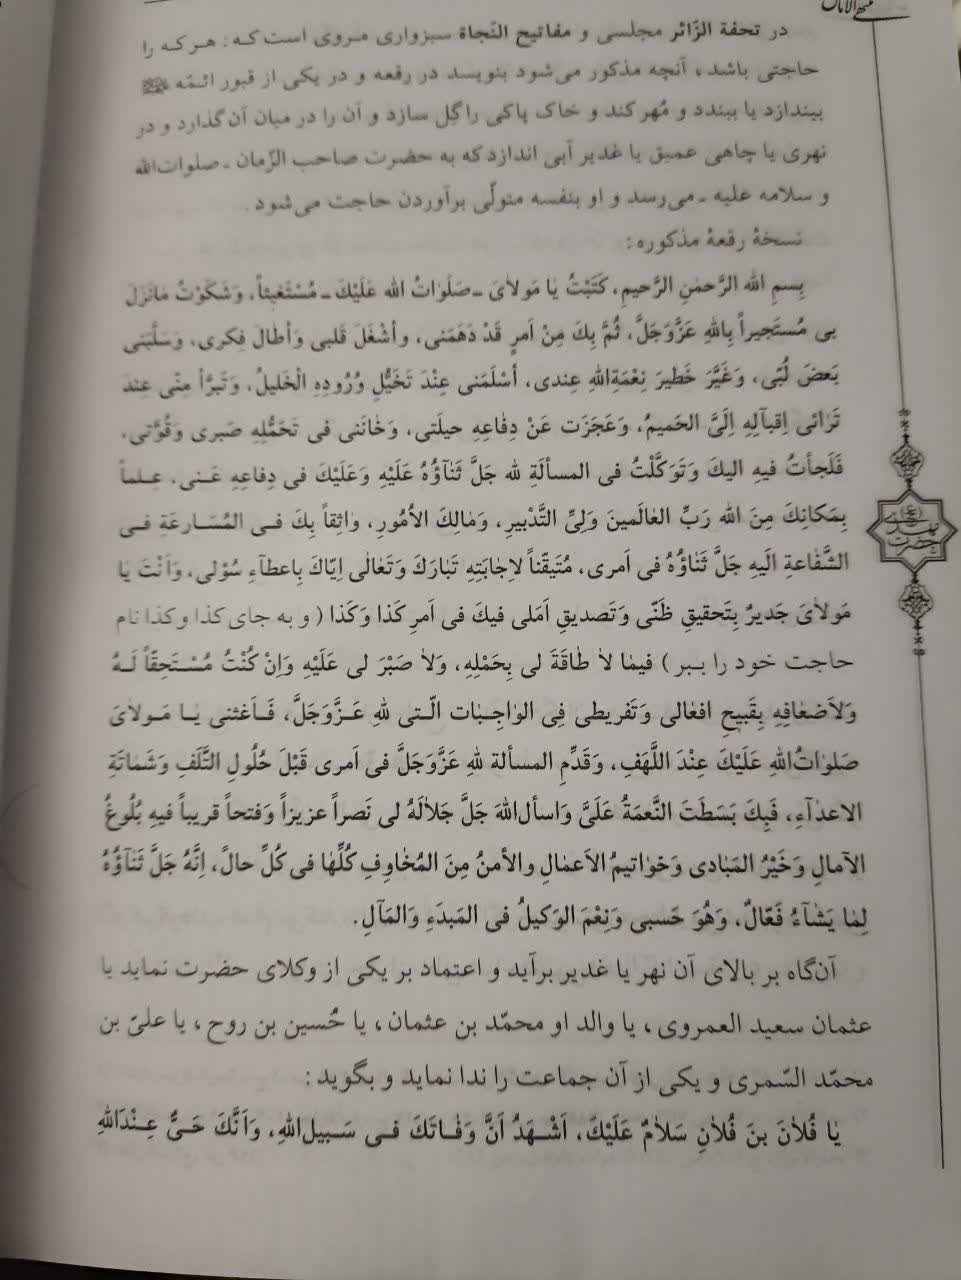 منتهی الآمال
در تحفة الزّائر مجلسی و مفاتیح النّجاة سبزواری مروی است که : هر که را
حاجتی باشد ، آنچه مذکور می‌شود بنویسد در رقعه و در یکی از قبور ائمّه
بیندازد یا ببندد و مُهر کند و خاک پاکی را گِل سازد و آن را در میان آن گذارد و در
نهری یا چاهی عمیق یا غدیر آبی اندازد که به حضرت صاحب الزّمان ـ صلوات‌الله
و سلامه علیه ـ می‌رسد و او بنفسه متولّی برآوردن حاجت می‌شود .
نسخهٔ رقعهٔ مذکوره :
بِسمِ اللهِ الرَّحمٰنِ الرَّحیمِ، کَتَبْتُ یٰا مَولاٰیَ ـ صَلَوٰاتُ اللهِ عَلَیْكَ ـ مُسْتَغیثاً، وَشَکَوْتُ مٰانَزَلَ
بی مُستَجیراً بِاللهِ عَزَّوَجَلَّ، ثُمَّ بِكَ مِنْ اَمرٍ قَدْ دَهَمَنی، وأشْغَلَ قَلبی وَأطٰالَ فِکری، وَسَلَبَنی
بَعضَ لُبّی، وَغَیَّرَ خَطیرَ نِعْمَةِاللهِ عِندی، أسْلَمَنی عِنْدَ تَخَیُّلِ وُرُودِهِ الْخَلیلُ، وَتَبَرَّأَ مِنّی عِندَ
تَرٰائی اِقبٰالِهِ اِلَیَّ الحَمیمُ، وَعَجَزَت عَنْ دِفٰاعِهِ حیلَتی، وَخٰانَنی فی تَحَمُّلِهِ صَبری وَقُوَّتی،
فَلَجأتُ فیهِ الیكَ وَتَوَکَّلْتُ فی المسألَةِ لله جَلَّ ثَنٰاؤُهُ عَلَیْهِ وَعَلَیْكَ فی دِفاعِهِ عَنی، عِلماً
بِمَکانِكَ مِنَ اللهِ رَبِّ العٰالَمینَ وَلِیِّ التَّدْبیرِ، وَمٰالِكِ الأمُورِ، وٰاثِقاً بِكَ فی المُسٰارعَةِ فی
الشَّفٰاعَةِ الَیهِ جَلَّ ثَنٰاؤُهُ فی اَمری، مُتَیقّناً لاِجٰابَتِهِ تَبٰارَكَ وَتَعٰالٰی اِیّاكَ بِاعطآءِ سُؤلی، وَاَنْتَ یا
مَولاٰیَ جَدیرٌ بِتَحقیقِ ظَنّی وَتَصدیقِ اَمَلی فیكَ فی اَمرِ کَذا وَکَذا ( و به جای کذا و کذا نام
حاجت خود را ببر ) فیمٰا لاٰ طٰاقَةَ لی بِحَمْلِهِ، وَلاٰ صَبْرَ لی عَلَیْهِ وَاِنْ کُنْتُ مُسْتَحِقّاً لَهُ
وَلاَضعٰافِهِ بِقَبیحِ افعٰالی وَتَفریطی فِی الوٰاجِبٰات الّتی لِلهِ عَزَّوَجَلَّ، فَاَغثنی یٰا مَولاٰیَ
صَلَوٰاتُ‌اللهِ عَلَیْكَ عِنْدَ اللَّهَفِ، وَقَدِّمِ المسألة لِلهِ عَزَّوَجَلَّ فی اَمری قَبْلَ حُلُولِ التَّلَفِ وَشَمٰاتَةِ
الاعدٰآءِ، فَبِكَ بَسَطَتَ النَّعمَةُ عَلَیَّ وَاسأل‌اللهَ جَلَّ جَلاٰلَهُ لی نَصراً عزیزاً وَفتحاً قریباً فیهِ بُلُوغُ
الآمالِ وَخَیْرُ المَبٰادی وَخَوٰاتیمُ الاَعمٰالِ والأمنُ مِنَ المَخٰاوِفِ کُلِّهٰا فی کُلِّ حالٍ، اِنَّهُ جَلَّ ثَنٰاؤُهُ
لِمٰا یَشٰآءُ فَعّالٌ، وَهُوَ حَسبی وَنِعْمَ الوَکیلُ فی المَبدَءِ وَالمَآلِ.
آن‌گاه بر بالای آن نهر یا غدیر برآید و اعتماد بر یکی از وکلای حضرت نماید یا
عثمان سعید العمروی ، یا والد او محمّد بن عثمان ، یا حُسین بن روح ، یا علیّ بن
محمّد السّمری و یکی از آن جماعت را ندا نماید و بگوید :
یٰا فُلاٰنَ بنَ فُلاٰنٍ سَلاٰمٌ عَلَیْكَ، اَشْهَدُ اَنَّ وَفٰاتَكَ فی سَبیلِ‌اللهِ، وَاَنَّكَ حَیٌّ عِنْدَاللهِ
حضرت مهدی